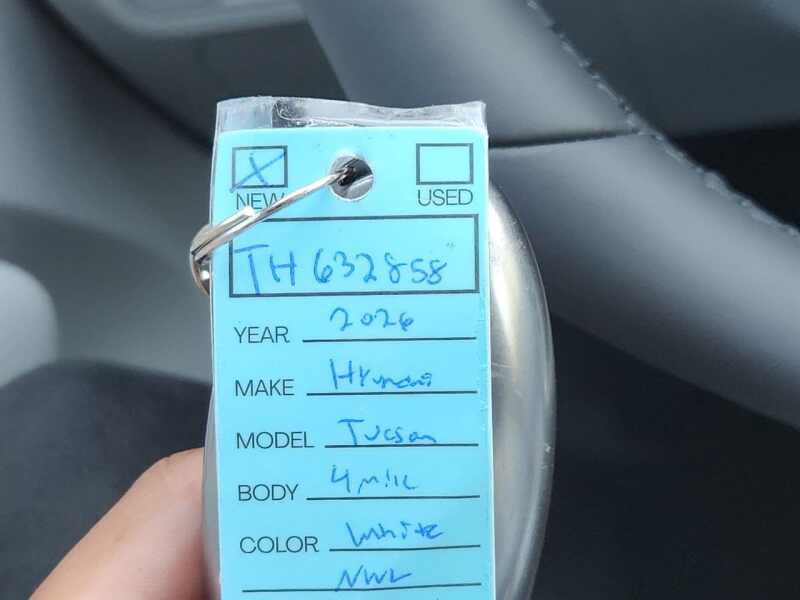 NEW USED
TH632858
YEAR 2026
MAKE Hyundai
MODEL Tucson
BODY
COLOR White